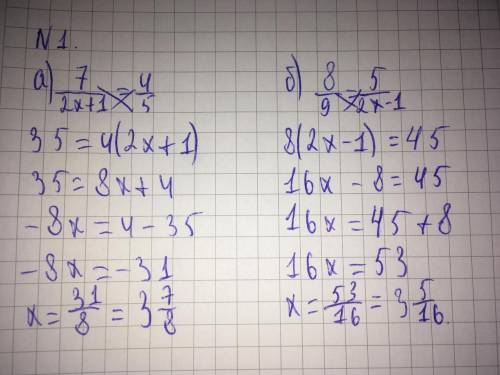 N 1.
а) 7/(2x+1) = 4/5
35 = 4(2x+1)
35 = 8x + 4
-8x = 4 - 35
-8x = -31
x = 31/8 = 3 7/8
б) 8/9 = 5/(2x-1)
8(2x-1) = 45
16x - 8 = 45
16x = 45 + 8
16x = 53
x = 53/16 = 3 5/16.